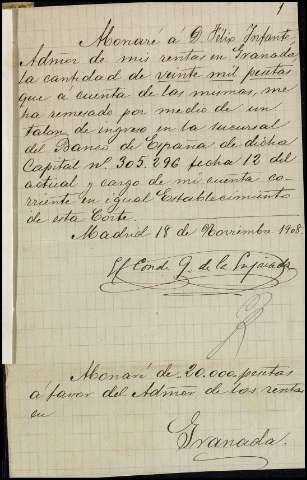 1
Monaré á D. Felix Infante
Admor de mis rentas en Granada
la cantidad de veinte mil pesetas
que á cuenta de las mismas, me
ha remesado por medio de un
talon de ingreso en la sucursal
del Banco de España de dicha
Capital nº. 305.296 fecha 12 del
actual y cargo de mi cuenta co-
rriente en igual Establecimiento
de esta Corte.
Madrid 18 de Noviembre 1908.
El Conde de la
Monaré de 20.000 pesetas
á favor del Admor de las rentas
en
Granada.